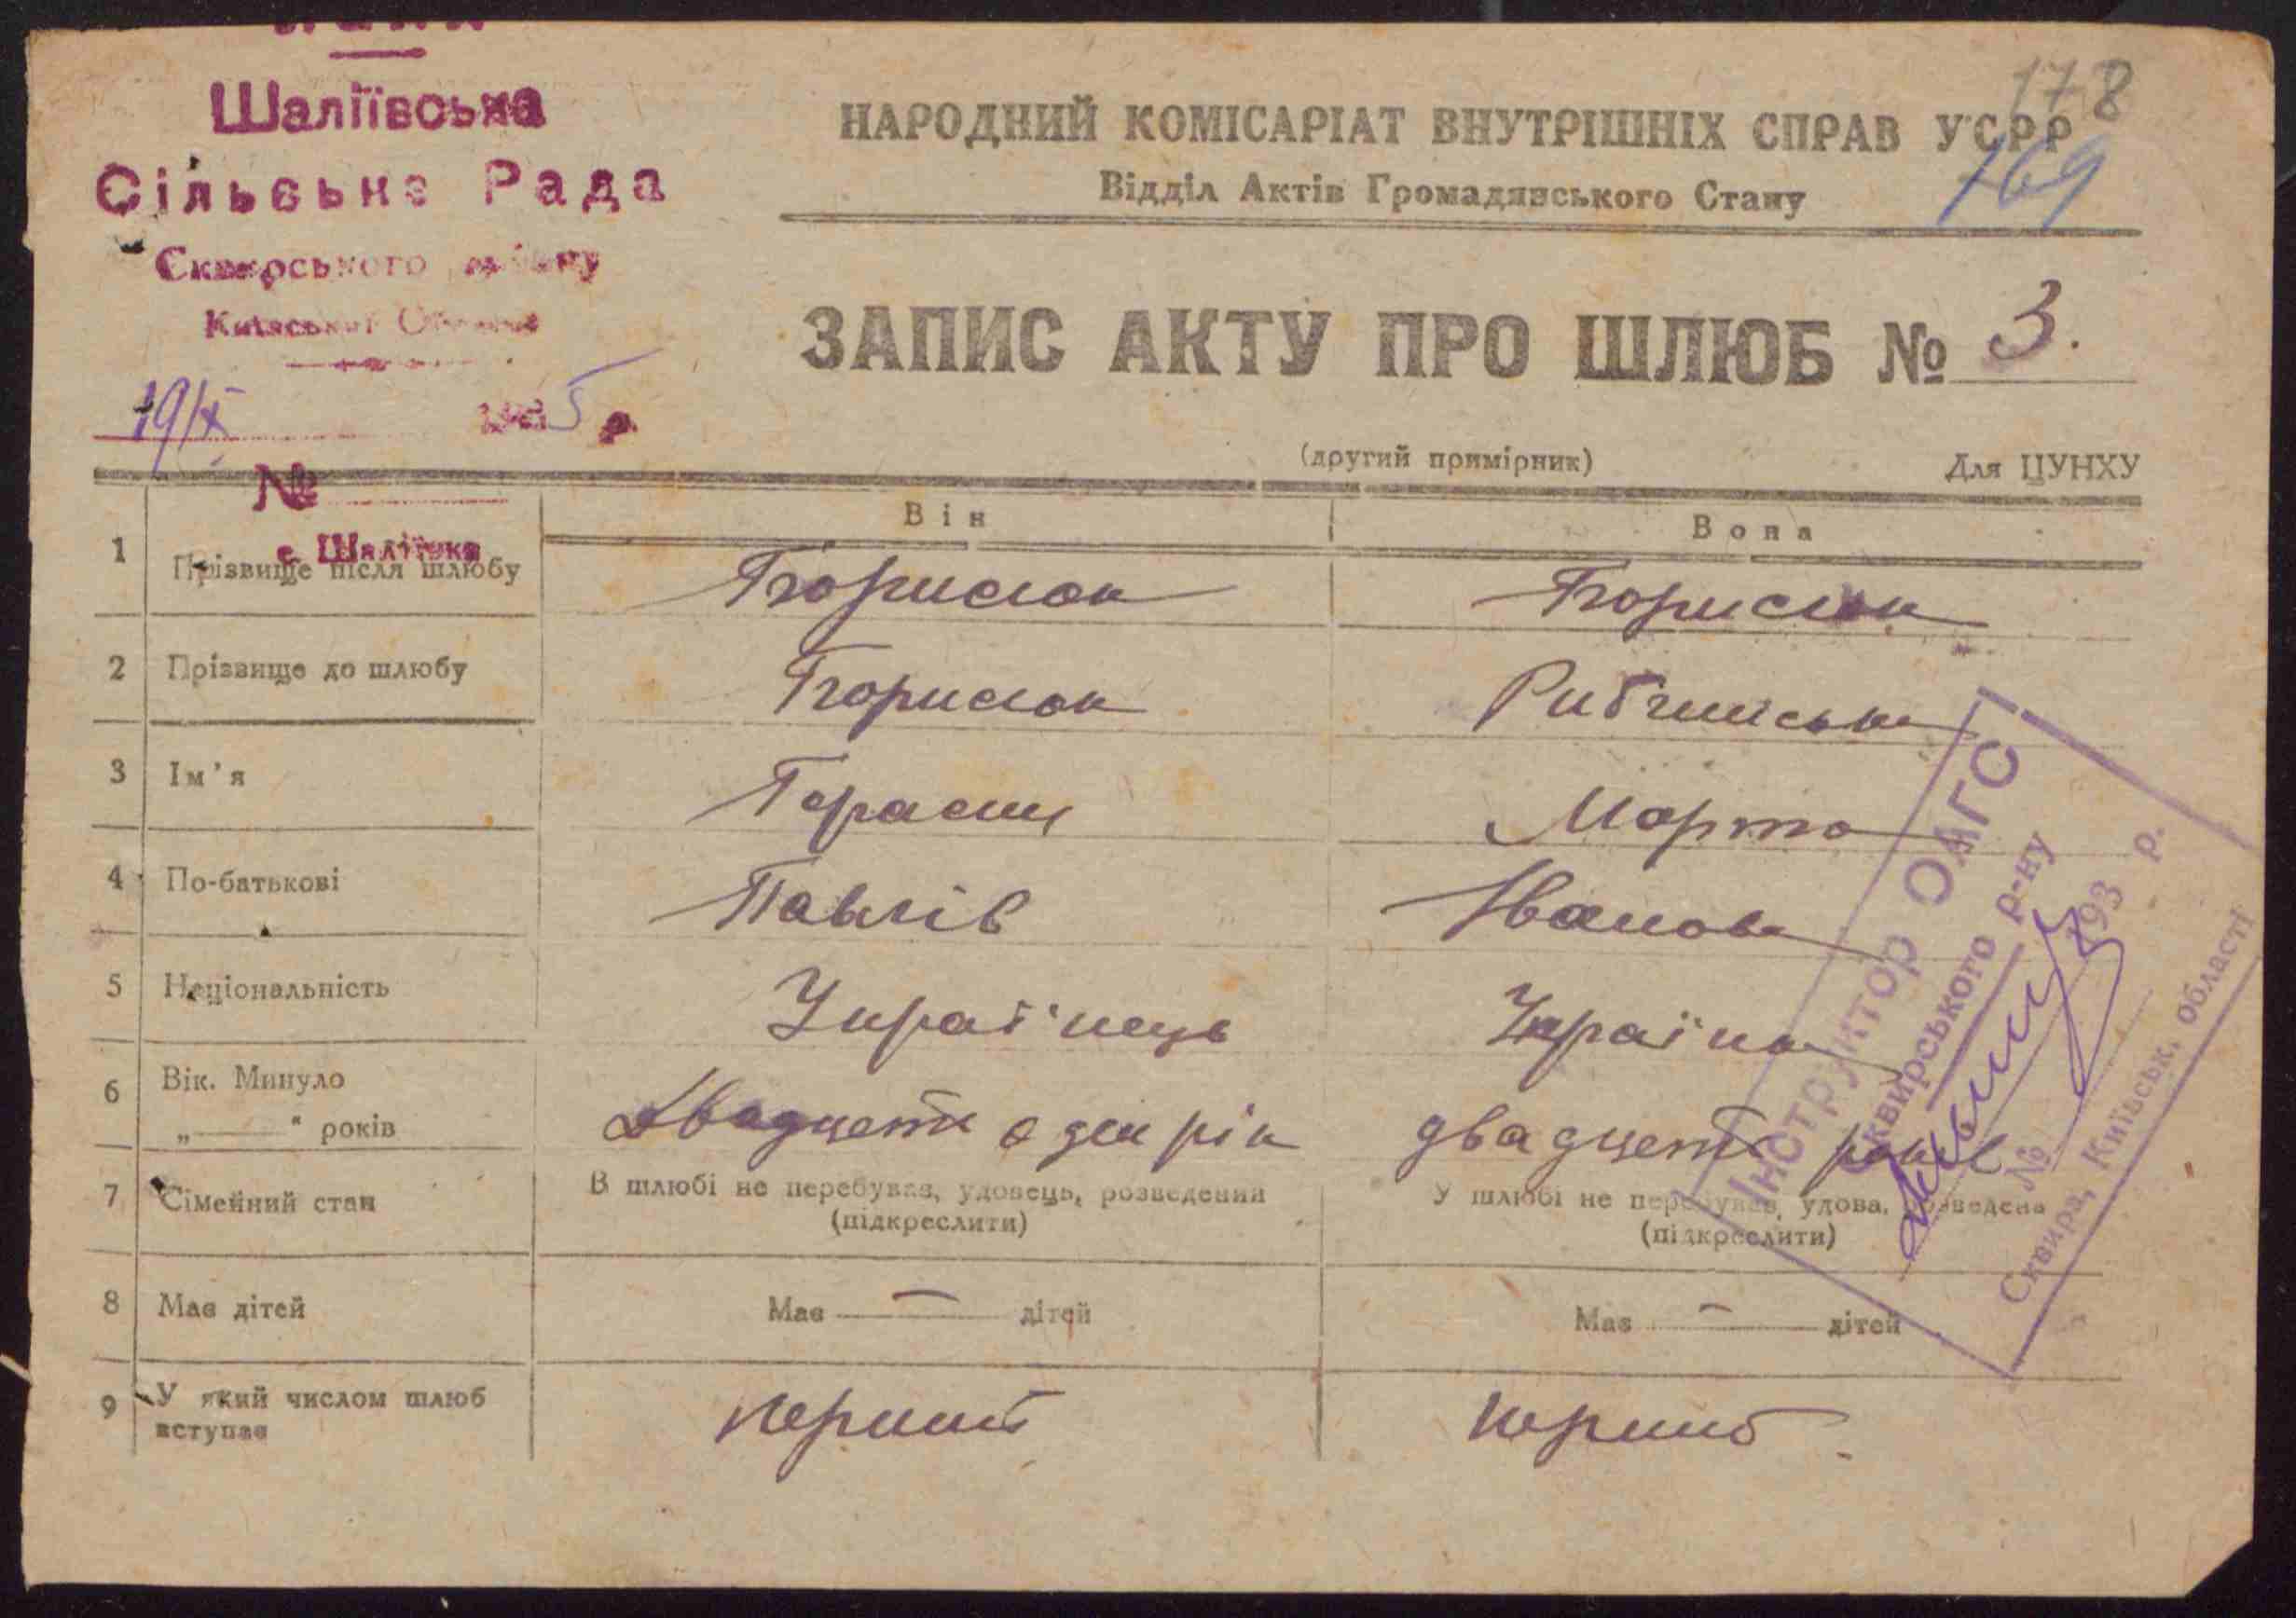 Шаліївська
Сільська Рада
Сквирського району
Київської Області
19/X 1935 р.
№
с. Шаліївка
178
169
НАРОДНИЙ КОМІСАРІАТ ВНУТРІШНІХ СПРАВ УСРР
Відділ Актів Громадянського Стану
ЗАПИС АКТУ ПРО ШЛЮБ № 3.
(другий примірник) Для ЦУНХУ
Він Вона
1 Прізвище після шлюбу
2 Прізвище до шлюбу
3 Ім'я Гарасим Марта
4 По-батькові Павлів Іванова
5 Національність Українець Україна
6 Вік. Минуло
„—“ років Двадцеть оден рік двадцеть років
7 Сімейний стан В шлюбі не перебував, удовець, розведений У шлюбі не перебував, удова, розведена
(підкреслити) (підкреслити)
8 Має дітей Має — дітей Має — дітей
9 У який числом шлюб
вступає перший перший
Інструктор ОАГС
Сквирського р-ну
193 р.
№
Сквира, Київськ. області